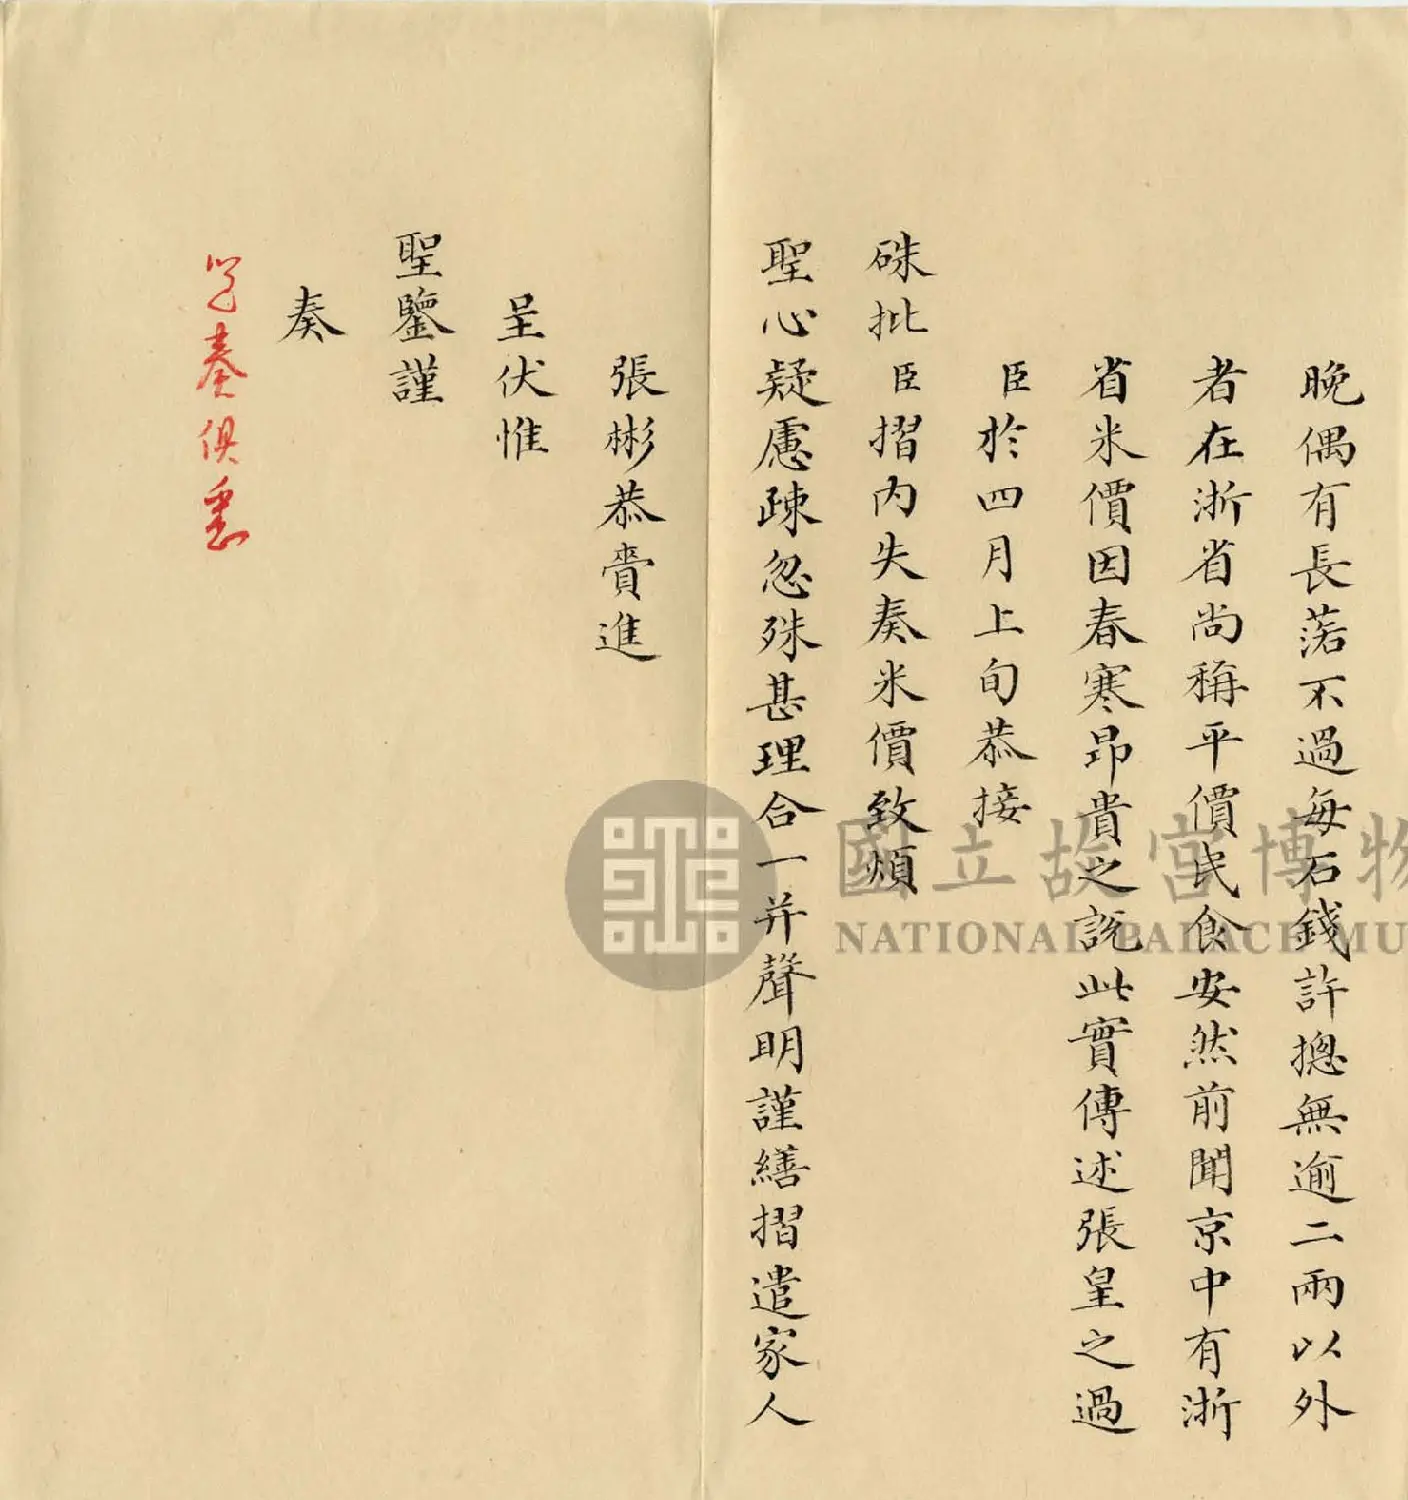 晚偶有長落不過每石錢許摠無逾二兩以外
者在浙省尚稱平價民食安然前聞京中有浙
省米價因春寒昂貴之說此實傳述張皇之過
臣於四月上旬恭接
硃批臣摺內失奏米價致煩
聖心疑慮疎忽殊甚理合一并聲明謹繕摺遣家人
張彬恭賫進
呈伏惟
聖鑒謹
奏
覽奏俱悉
國立故宮博物
NATIONAL PALACE MU